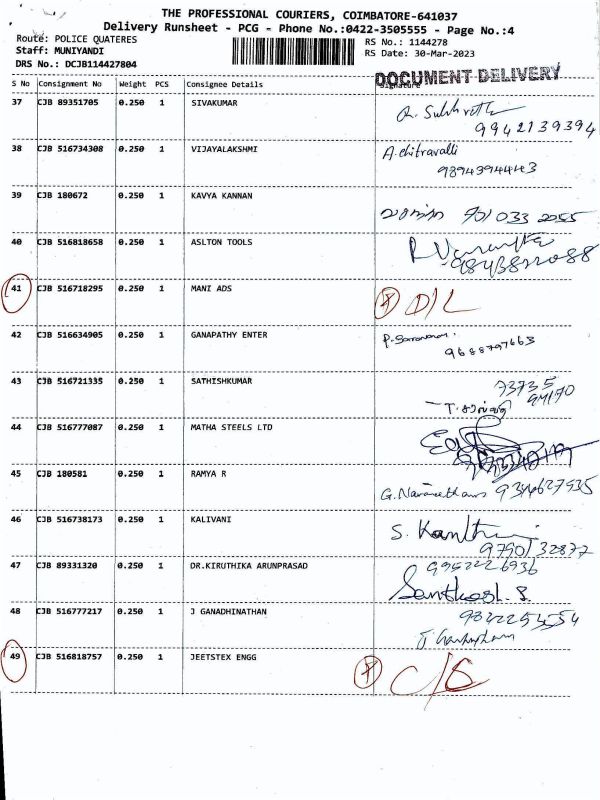 THE PROFESSIONAL COURIERS, COIMBATORE-641037
Delivery Runsheet - PCG - Phone No.:0422-3505555 - Page No.:4
Route: POLICE QUATERES
Staff: MUNIYANDI
DRS No.: DCJB114427804
RS No.: 1144278
RS Date: 30-Mar-2023
S No Consignment No Weight PCS Consignee Details Signature
DOCUMENT DELIVERY
37 CJB 89351705 0.250 1 SIVAKUMAR
9942139394
38 CJB 516734308 0.250 1 VIJAYALAKSHMI A. chitravalli
9894394443
39 CJB 180672 0.250 1 KAVYA KANNAN
40 CJB 516818658 0.250 1 ASLTON TOOLS
41 CJB 516718295 0.250 1 MANI ADS D/L
42 CJB 516634905 0.250 1 GANAPATHY ENTER
9688797663
43 CJB 516721335 0.250 1 SATHISHKUMAR 73735
94170
44 CJB 516777087 0.250 1 MATHA STEELS LTD
45 CJB 180581 0.250 1 RAMYA R
46 CJB 516738173 0.250 1 KALIVANI
9790132877
47 CJB 89331320 0.250 1 DR.KIRUTHIKA ARUNPRASAD 9952226936
48 CJB 516777217 0.250 1 J GANADHINATHAN
49 CJB 516818757 0.250 1 JEETSTEX ENGG C/S